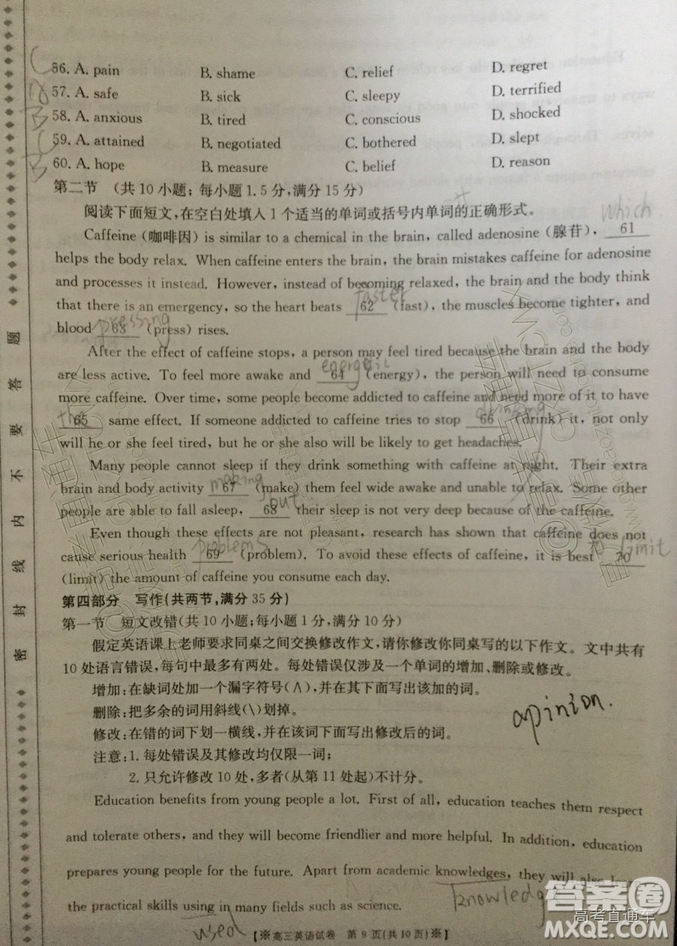 C
56. A. pain B. shame C. relief D. regret
57. A. safe B. sick C. sleepy D. terrified
B
58. A. anxious B. tired C. conscious D. shocked
59. A. attained B. negotiated C. bothered D. slept
60. A. hope B. measure C. belief D. reason
第二节 (共10小题;每小题1.5分,满分15分)
阅读下面短文,在空白处填入1个适当的单词或括号内单词的正确形式。
which
Caffeine (咖啡因) is similar to a chemical in the brain, called adenosine (腺苷), 61
helps the body relax. When caffeine enters the brain, the brain mistakes caffeine for adenosine
and processes it instead. However, instead of becoming relaxed, the brain and the body think
faster
that there is an emergency, so the heart beats 62 (fast), the muscles become tighter, and
pressing
blood 63 (press) rises.
After the effect of caffeine stops, a person may feel tired because the brain and the body
energetic
are less active. To feel more awake and 64 (energy), the person will need to consume
more caffeine. Over time, some people become addicted to caffeine and need more of it to have
the
65 same effect. If someone addicted to caffeine tries to stop 66 (drink) it, not only
will he or she feel tired, but he or she will be likely to get headaches.
Many people cannot sleep if they drink something with caffeine at night. Their extra
making
brain and body activity 67 (make) them feel wide awake and unable to relax. Some other
but
people are able to fall asleep, 68 their sleep is not very deep because of the caffeine.
Even though these effects are not pleasant, research has shown that caffeine does not
problems
to limit
cause serious health 69 (problem). To avoid these effects of caffeine, it is best 70
(limit) the amount of caffeine you consume each day.
第四部分 写作(共两节,满分35分)
第一节 短文改错(共10小题;每小题1分,满分10分)
假定英语课上老师要求同桌之间交换修改作文,请你修改你同桌写的以下作文。文中共有
10处语言错误,每句中最多有两处。每处错误仅涉及一个单词的增加、删除或修改。
增加:在缺词处加一个漏字符号(∧),并在其下面写出该加的词。
删除:把多余的词用斜线(\)划掉。
修改:在错的词下划一横线,并在该词下面写出修改后的词。
apinion.
注意:1. 每处错误及其修改均仅限一词;
2. 只允许修改10处,多者(从第11处起)不计分。
Education benefits from young people a lot. First of all, education teaches them respect
and tolerate others, and they will become friendlier and more helpful. In addition, education
prepares young people for the future. Apart from academic knowledges, they will also learn
the practical skills using in many fields such as science.
used
【※高三英语试卷 第9页(共10页)※】
密 封 线 内 不 要 答 题
答案圈
高考直通车